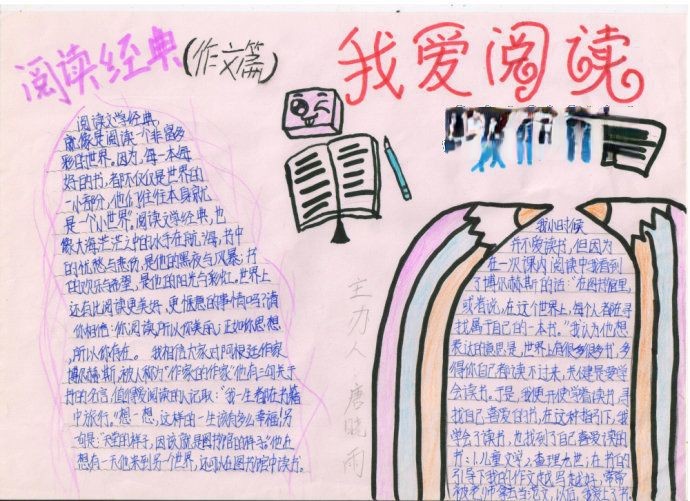 阅读经典(作文篇)
我爱阅读
阅读文学经典,
就像是阅读一个非富多
彩的世界。因为,每一本每
好的书,都不仅仅是世界的
一小部分,他们往往本身就
是一个小世界"。阅读文学经典,也
像大海茫茫中的水手在航海,书中
的忧愁与悲伤,是他的黑夜与风暴;书
的欢乐与希望,是他的阳光与彩虹。世界上
还有比阅读更美好,更惬意的事情吗?请
你相信:你阅读,所以你美丽;正如你思想
,所以你存在。 我相信大家对阿根廷作家
博尔赫斯,被人称为"作家的作家"他有三句关于
书的名言,值得我阅读的人记取:"我一生都在书籍
中旅行。"想一想,这样的一生该有多么幸福!另
句是:"天堂的样子,因该就是图书馆的样子。"他在
想有一天他来到另一个世界,还可以在图书馆中读书。
主办人 唐晓雨
我小时候
并不爱读书,但因为
在一次课内阅读中我看到
了博尔赫斯的话:"在图书馆里,
或者说,在这个世界上,每个人都在寻
找属于自己的一本书。"我认为他想
表达的意思是,世界上有很多很多书,多
得你自己都读不过来,关健是要学
会读书。于是,我便开使学着读书,寻
找自己喜爱的书,在这种指引下,我
学会了读书,也找到了自己喜爱读的
书:《儿童文学》,查理九世,在书的
引导下我的作文越写越好,常常
被老师